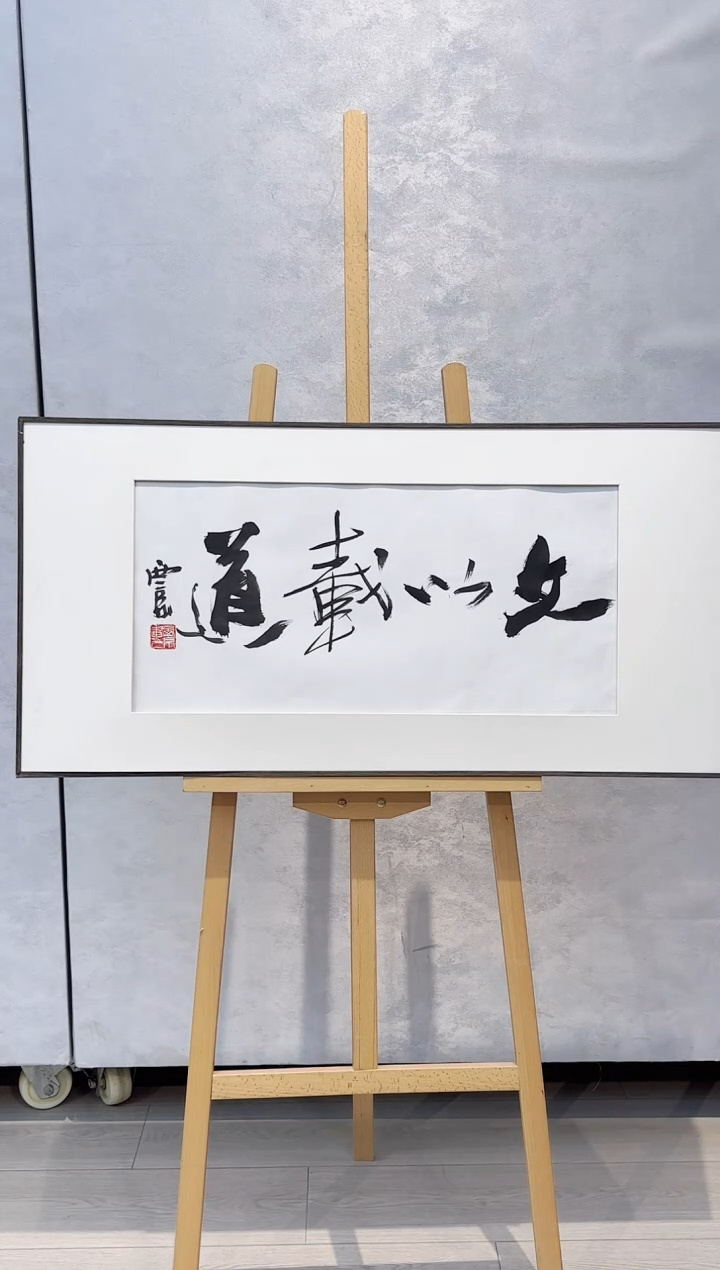 文以載道